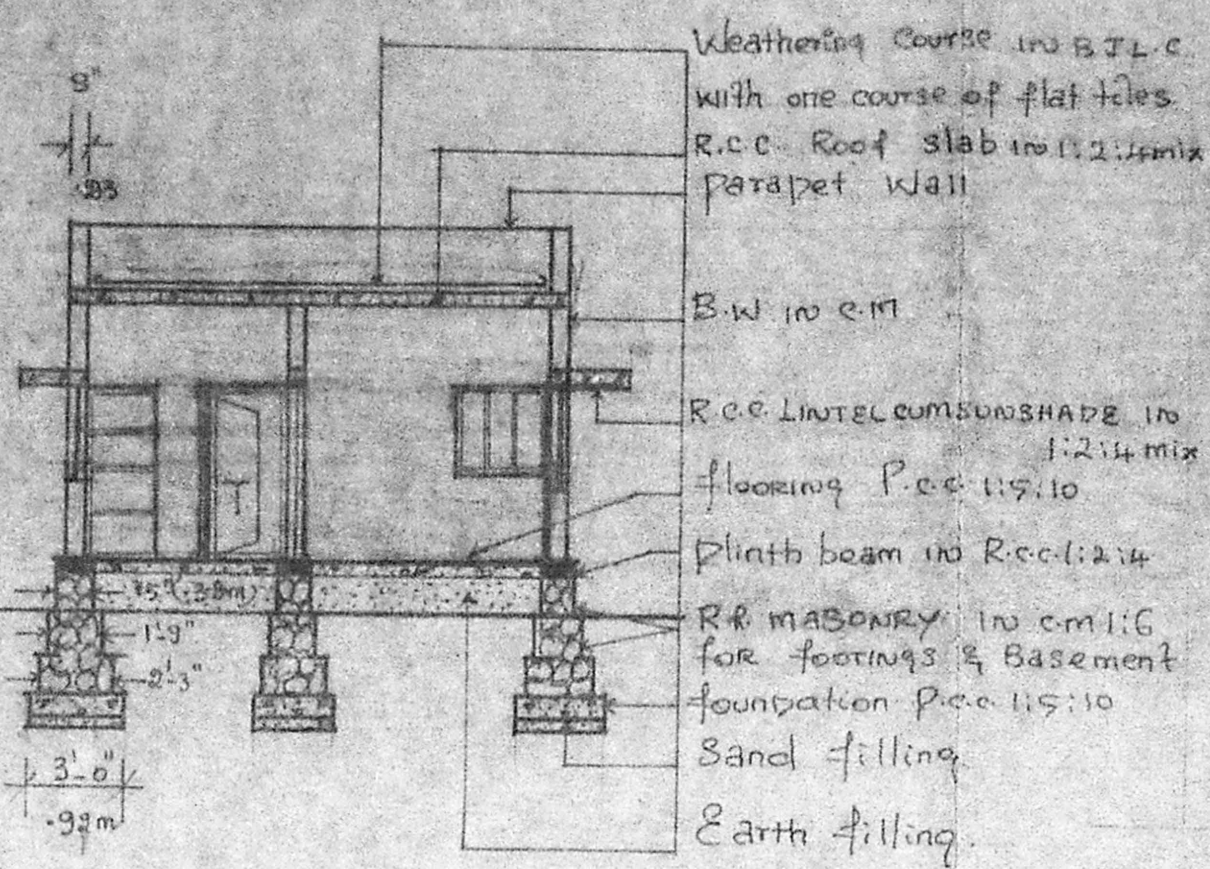 Weathering Course in B J L.C.
with one course of flat tiles
R.C.C. Roof slab in 1:2:4 mix
Parapet Wall
9"
.23
B.W in C.M
R.C.C. LINTEL CUM SUNSHADE IN
1:2:4 mix
flooring P.C.C. 1:5:10
Plinth beam in R.C.C. 1:2:4
R.R. MASONRY in C.M 1:6
for footings & Basement
foundation P.C.C. 1:5:10
Sand filling
Earth filling.
15" (.38m)
1'-9"
2'-3"
3'-0"
.92m